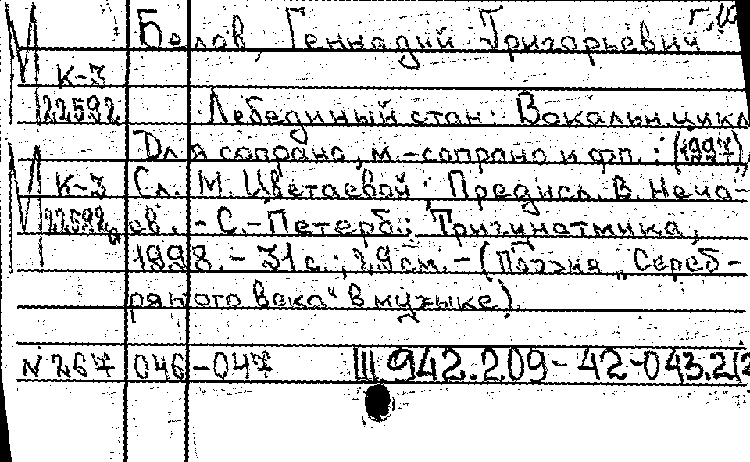 Белов, Геннадий Григорьевич
М
К-3
22592
Лебединый стан: Вокальн. цикл
Для сопрано, м.-сопрано и фп.: (1997)
М
К-3
22592а
Сл. М. Цветаевой; Предисл. В. Неча-
ев. - С.-Петерб.:
1998. - 31 с.; 29 см. - (Поэзия „Сереб-
ряного века“ в музыке).
N 267 046-047 III 942.209-42-043.2(2